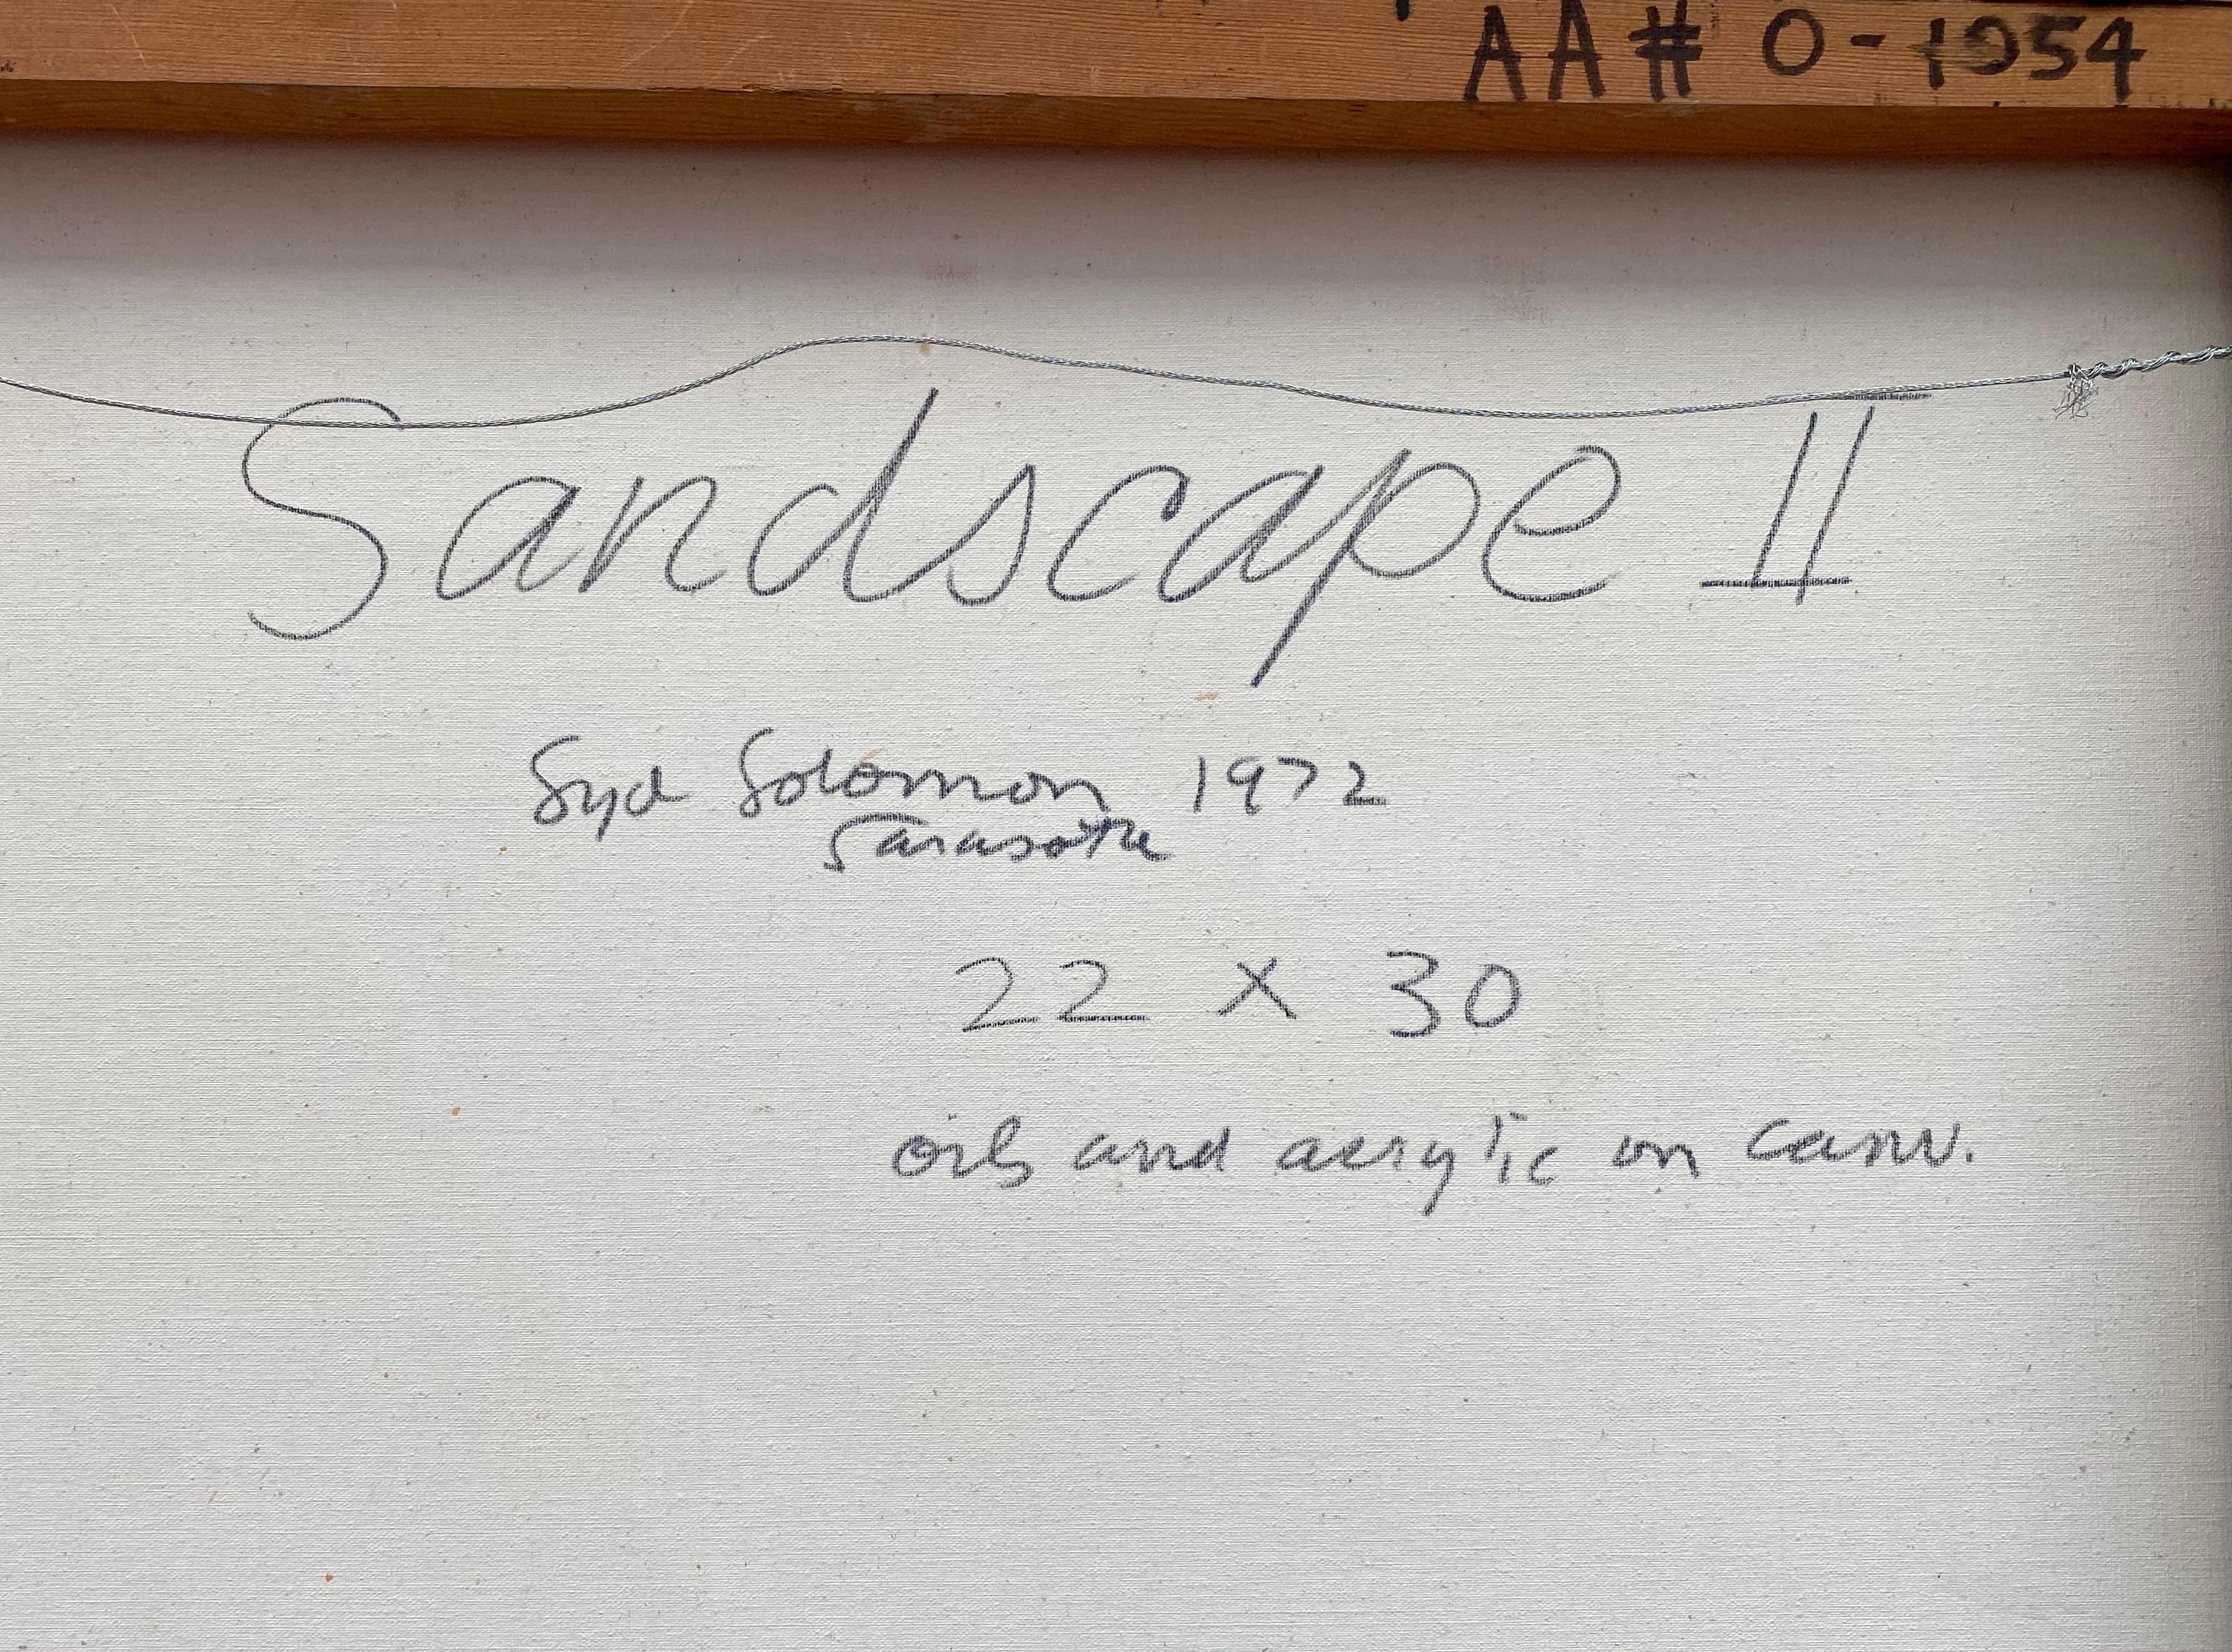 AA# 0-1954
Sandscape II
Syd Solomon 1972
Sarasota
22 x 30
oils and acrylic on canv.